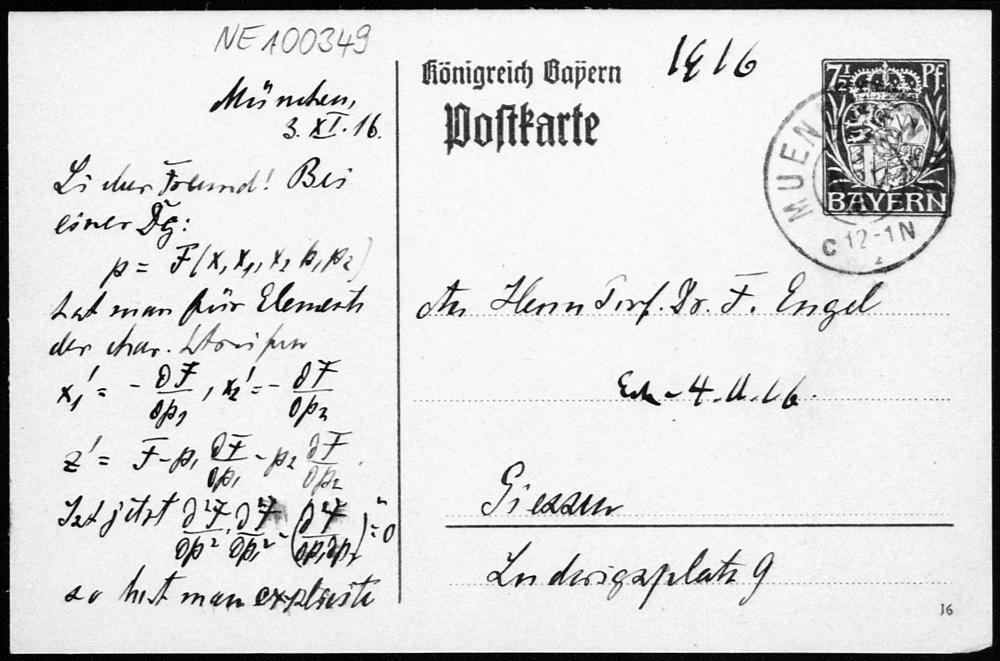 NE 100349
München,
3. XI. 16.
Lieber Freund! Bei
einer Dg:
p = F(x, x₁, x₂ p₁ p₂)
hat man für Elemente
der char. Streifen
x₁' = - ∂F/∂p₁, x₂' = - ∂F/∂p₂
z' = F - p₁ ∂F/∂p₁ - p₂ ∂F/∂p₂
Ist jetzt ∂²F/∂p₁² · ∂²F/∂p₂² - (∂²F/∂p₁∂p₂)² = 0
so hat man explicite
Königreich Bayern
1916
Postkarte
7½ Pf.
BAYERN
MUEN
C 12-1 N
2
An Herrn Prof. Dr. F. Engel
4. 11. 16.
Giessen
Ludwigsplatz 9
16